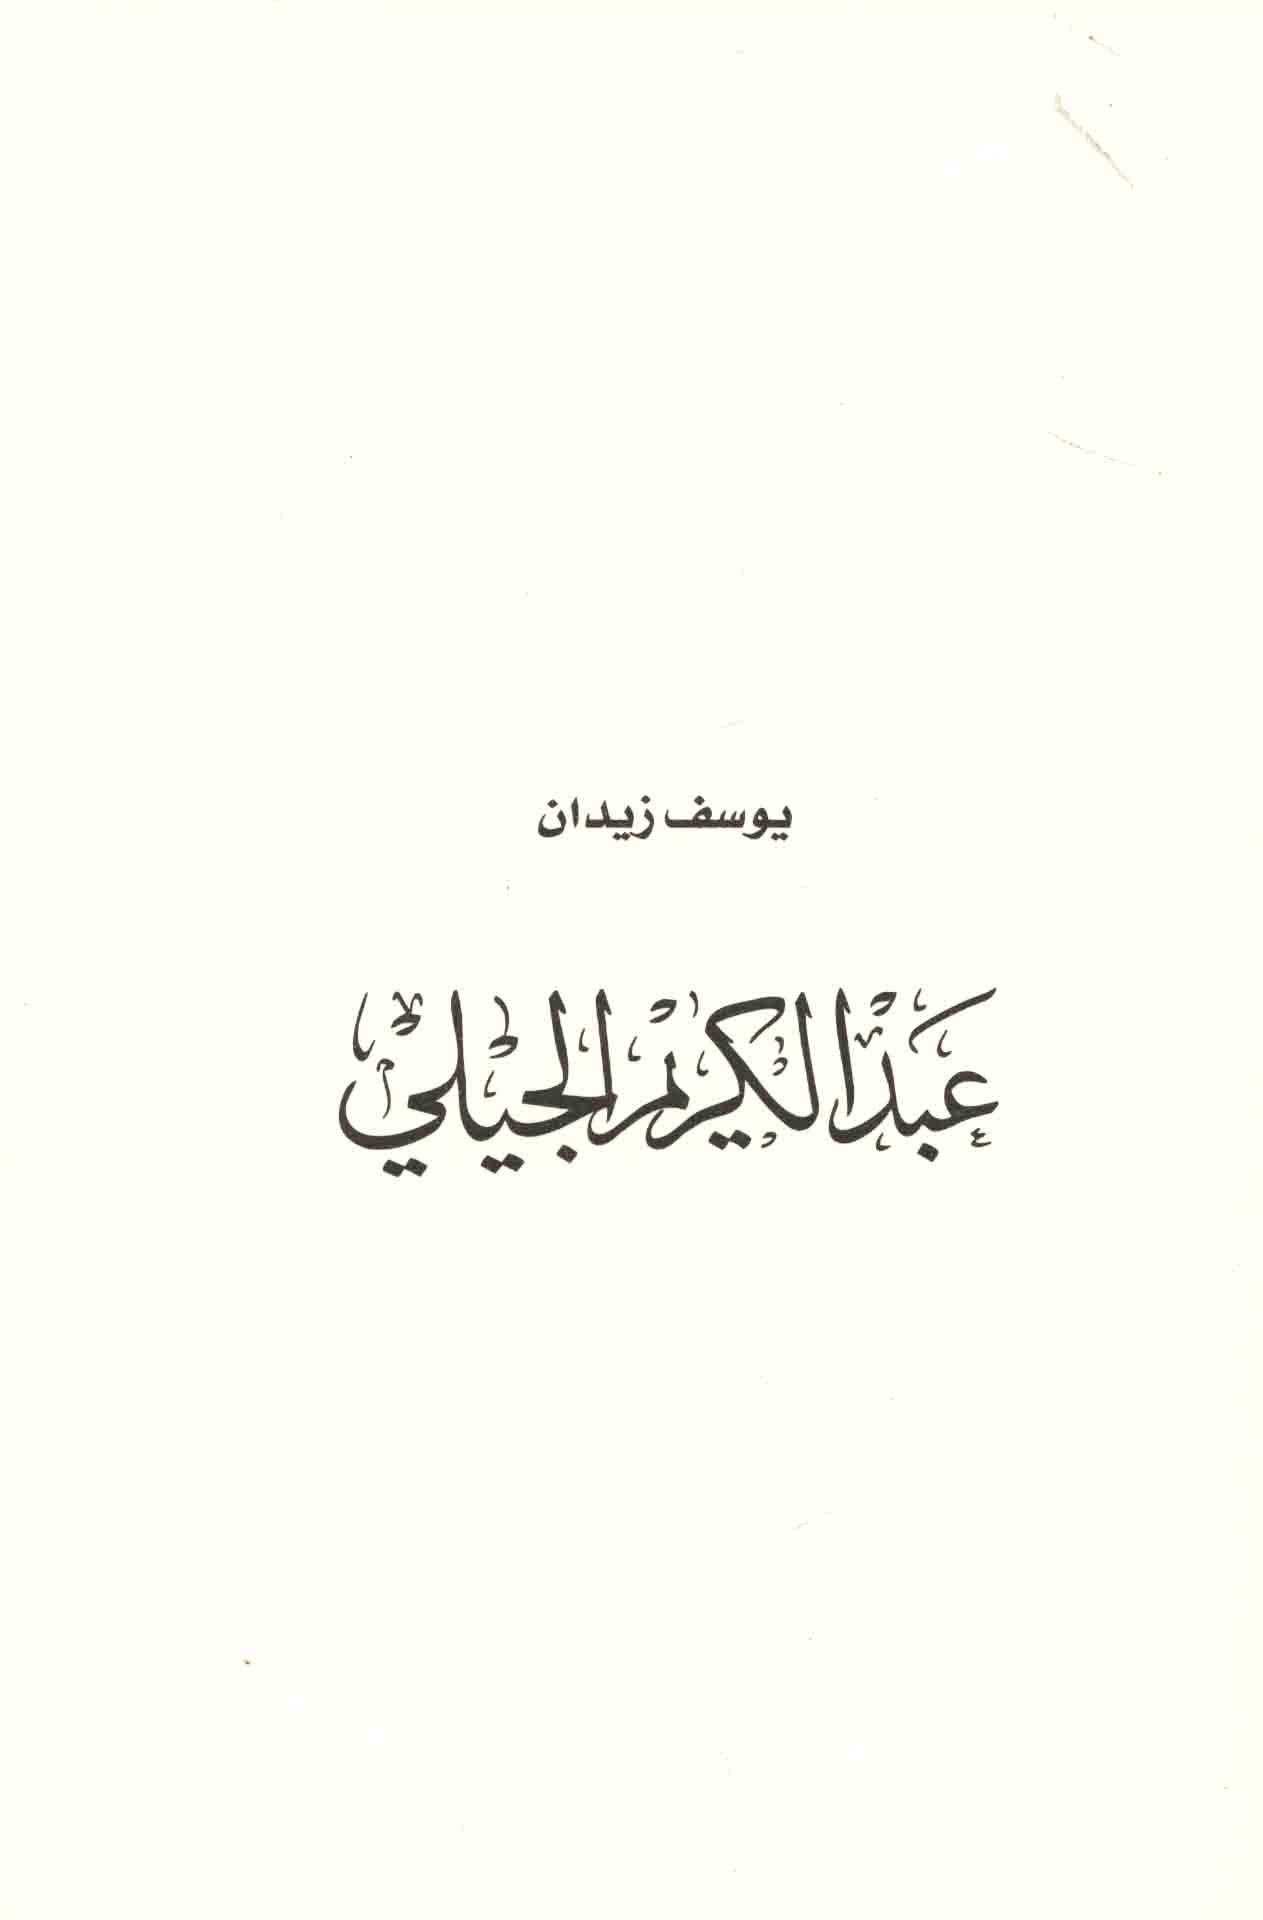 يوسف زيدان
عبد الكريم الجيلي